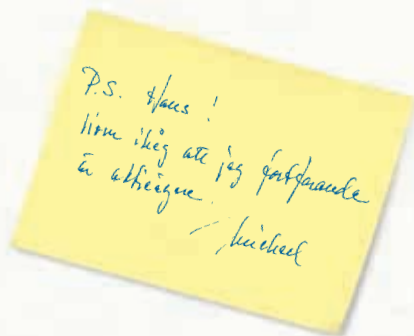 P.S. Hans!
Kom ihåg att jag fortfarande
är aktieägare.
/Michael